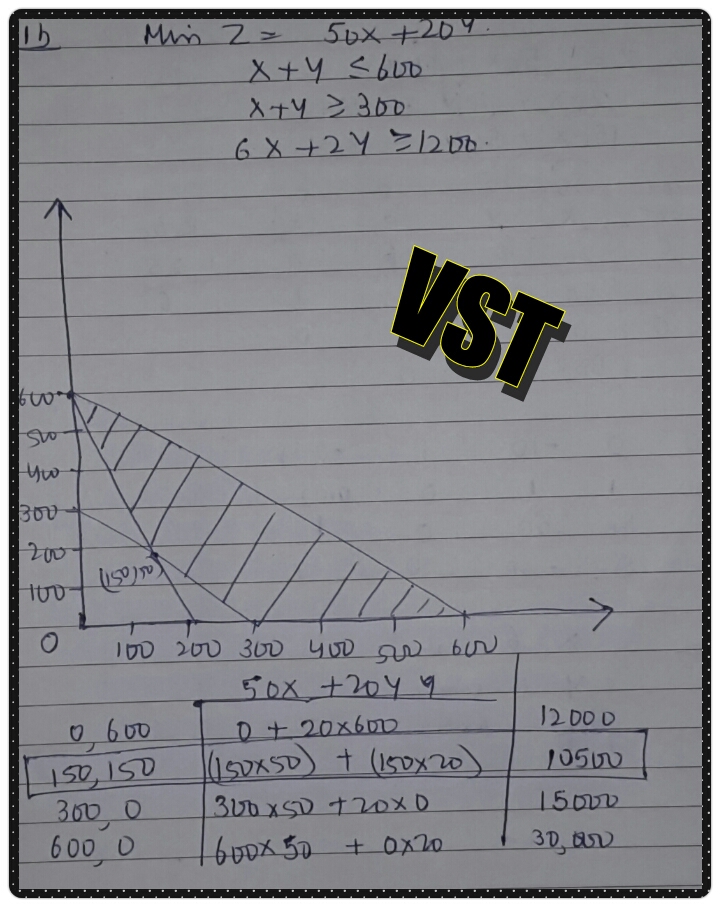 1b Min Z = 50x + 20y.
x + y ≤ 600
x + y ≥ 300
6x + 2y ≥ 1200.
VST
600
500
400
300
200
(150,150)
100
0 100 200 300 400 500 600
50x + 20y
0, 600 0 + 20×600 12000
150, 150 (150×50) + (150×20) 10500
300, 0 300×50 + 20×0 15000
600, 0 600×50 + 0×20 30,000